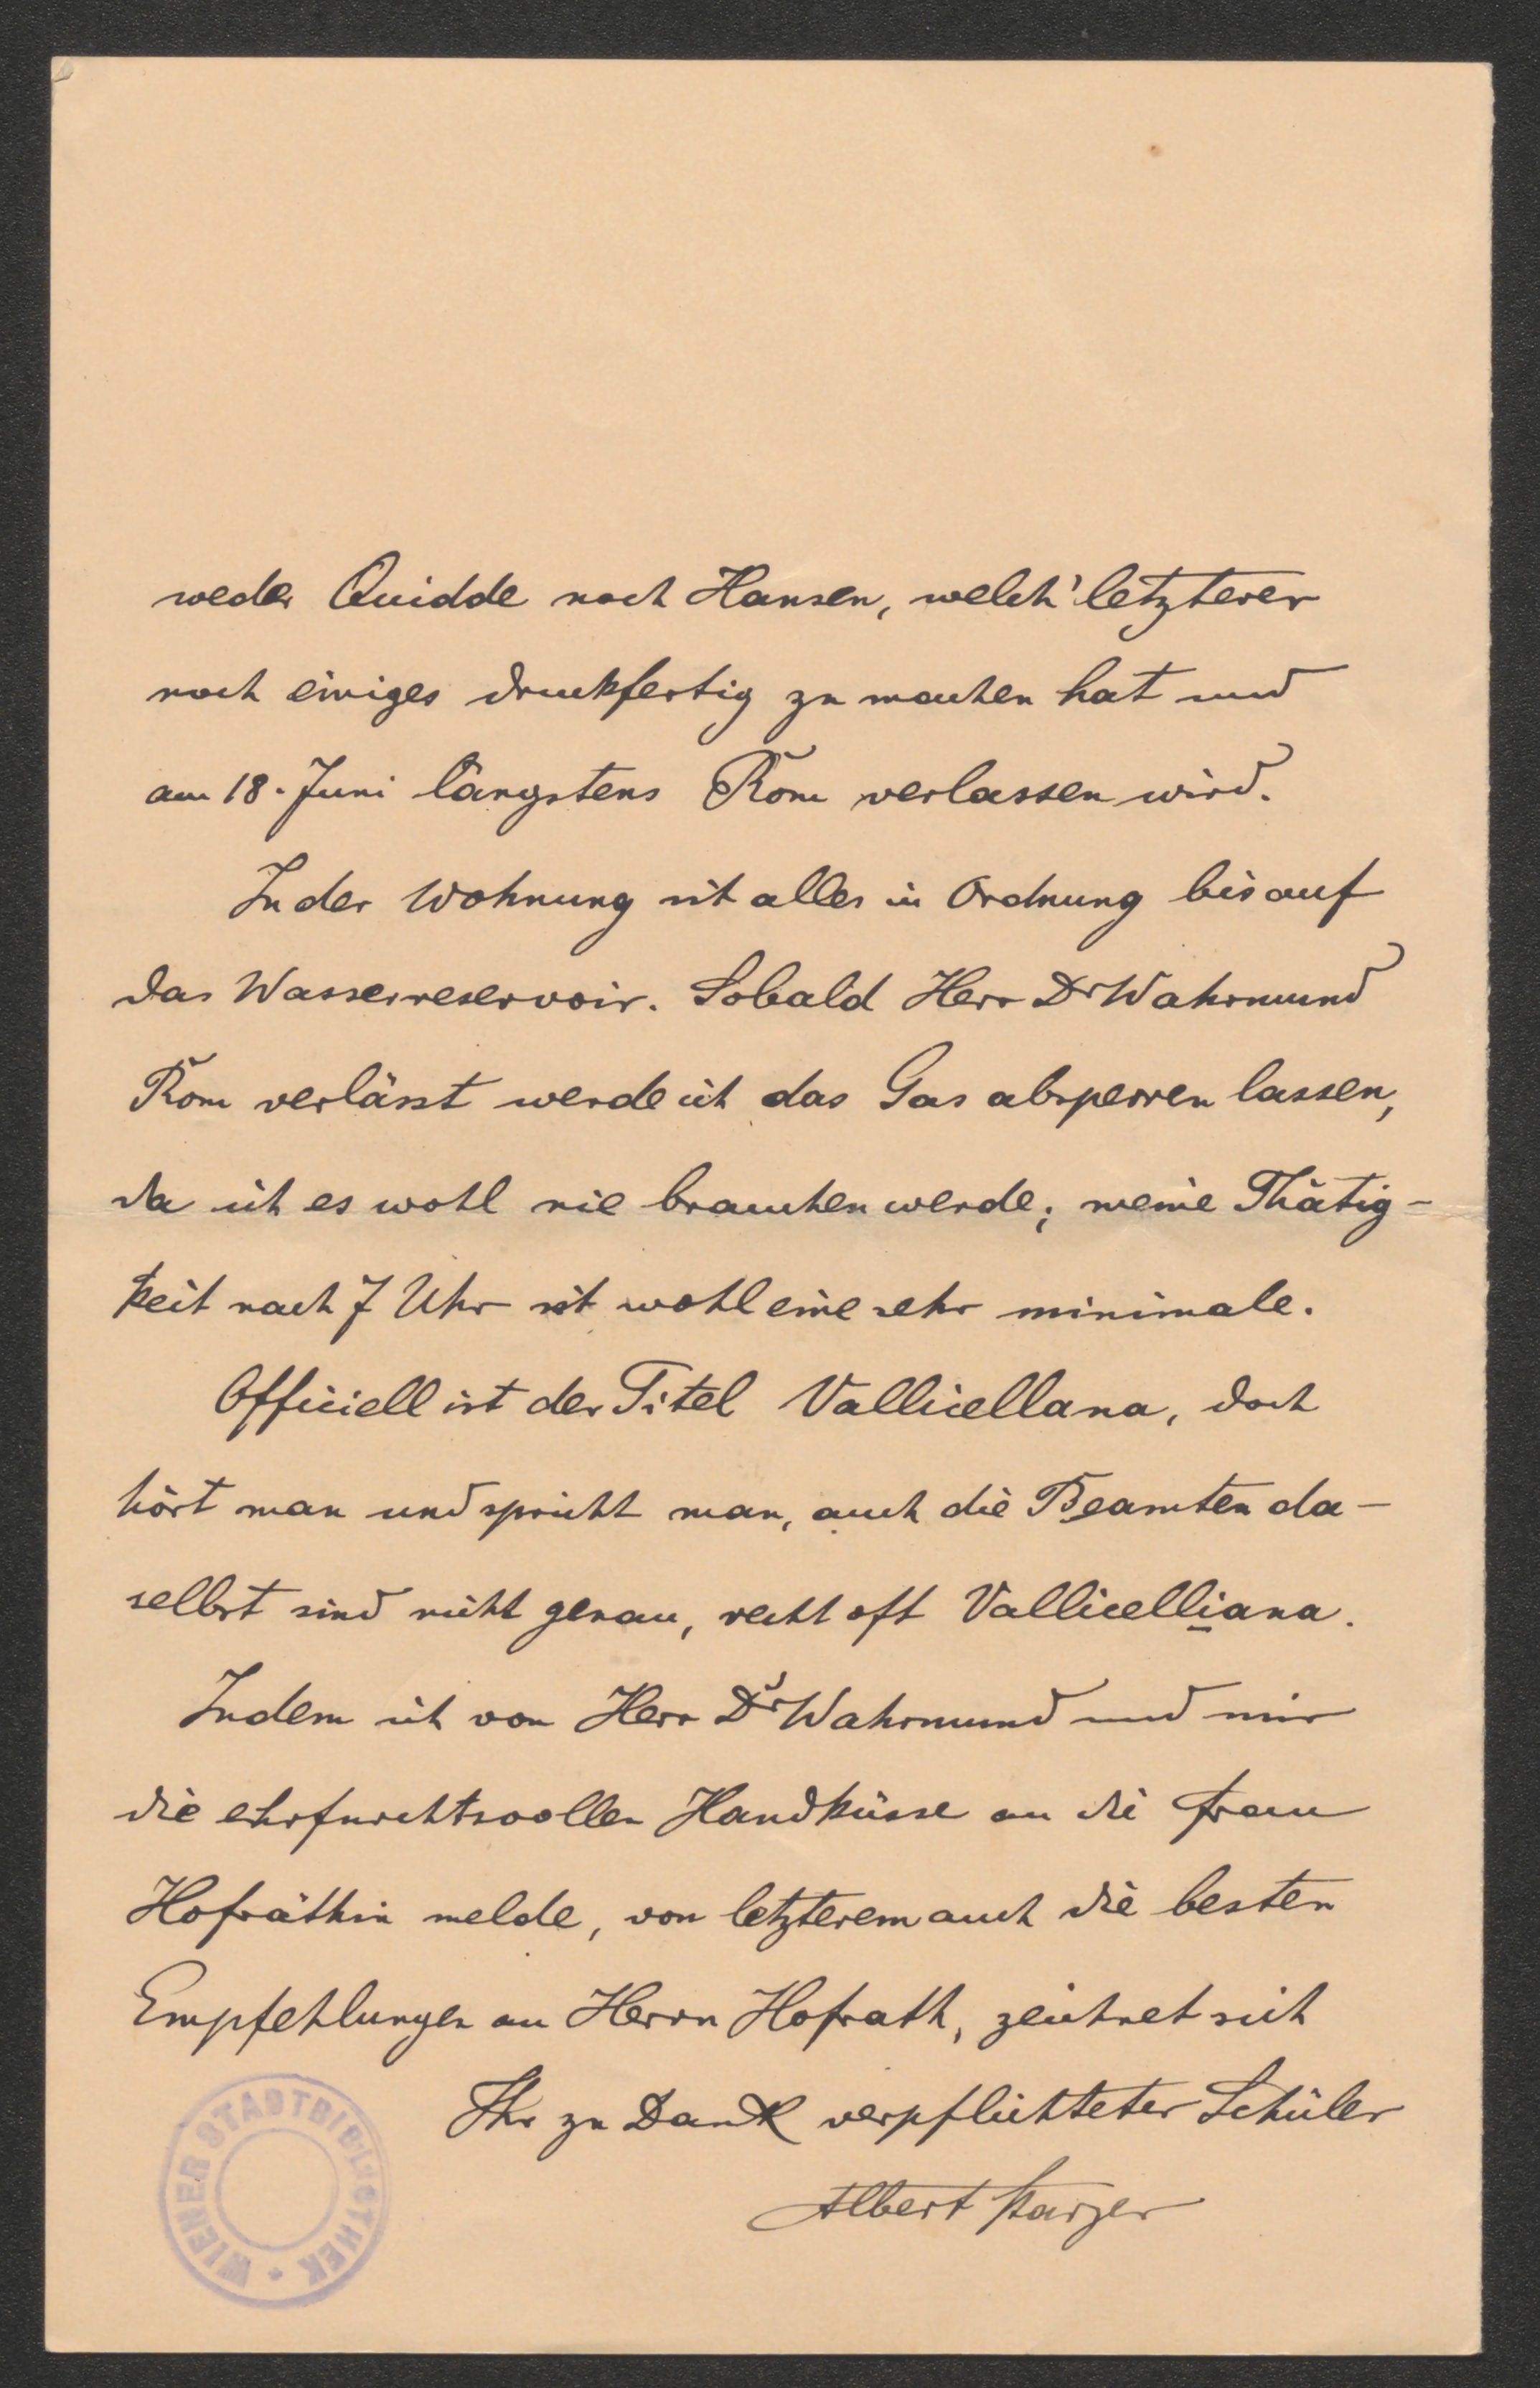 weder Quidde noch Hansen, welch' letzterer
noch einiges druckfertig zu machen hat und
am 18. Juni längstens Rom verlassen wird.
In der Wohnung ist alles in Ordnung bis auf
das Wasserreservoir. Sobald Herr Dr Wahrmund
Rom verlässt werde ich das Gas absperren lassen,
da ich es wohl nie brauchen werde; meine Thätig-
keit nach 7 Uhr ist wohl eine sehr minimale.
Officiell ist der Titel Vallicellana, doch
hört man und spricht man, auch die Beamten da-
selbst sind nicht genau, recht oft Vallicelliana.
Indem ich von Herr Dr Wahrmund und mir
die ehrfurchtsvollen Handküsse an die Frau
Hofräthin melde, von letzterem auch die besten
Empfehlungen an Herrn Hofrath, zeichnet sich
Ihr zu Dank verpflichteter Schüler
Albert Starzer
WIENER STADTBIBLIOTHEK